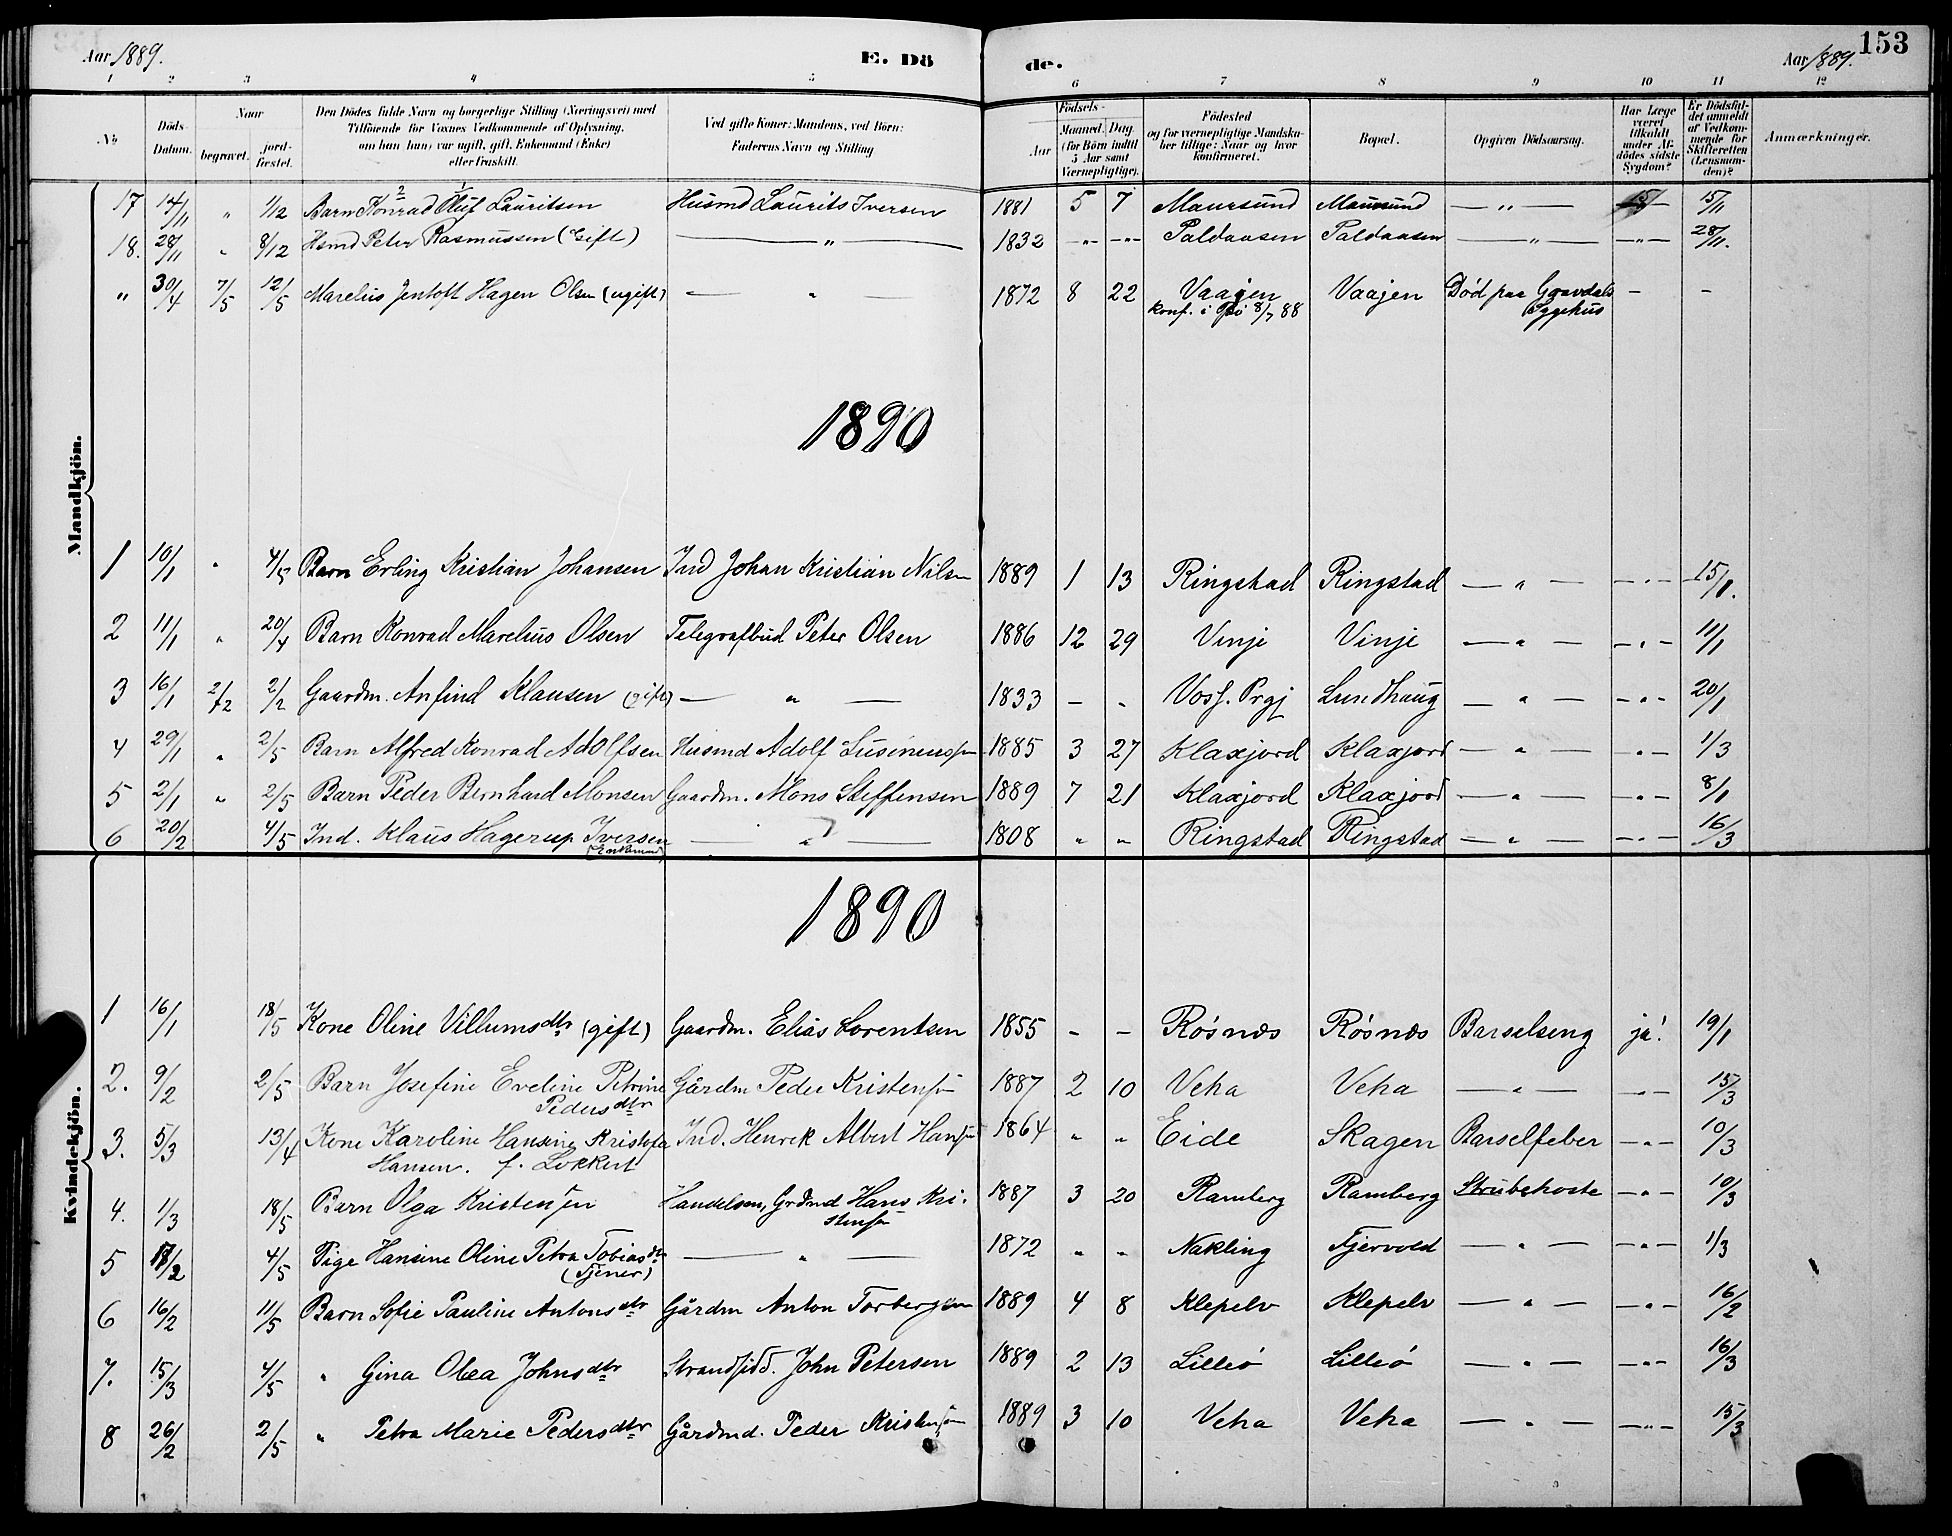 Aar 1889.
E. Dö
de.
Aar 1889.
153
1 2 3 4 5 6 7 8 9 10 11 12
No
Döds-Datum.
Naar
begravet.
jordfæstet.
Den Dödes fulde Navn og borgerlige Stilling (Næringsvei) med
Tilföiende for Voxnes Vedkommende af Oplysning,
om han (hun) var ugift, gift, Enkemand (Enke)
eller fraskilt.
Ved gifte Koner: Mandens, ved Börn:
Faderens Navn og Stilling
Födsels-
Aar
Maaned. Dag.
(for Börn indtil
5 Aar samt
Værnepligtige).
Födested
og for værnepligtige Mandskaber tillige: Naar og hvor
konfirmeret.
Bopæl.
Opgiven Dödsaarsag.
Har Læge
været
tilkaldt
under Afdödes sidste
Sygdom?
Er Dödsfaldet anmeldt
af Vedkommende for
Skifteretten
(Lensmanden)?
Anmærkninger.
Mandkjön.
17 14/11 " 1/12 Barn Konrad Oluf Lauritsen Husmd Laurits Iversen 1881 5 7 Maursund Maursund — " — 15/11
18. 28/11 " 8/12 Hsmd Peter Rasmussen (Gift) — " — 1832 — " — — " — Paldaasen Paldaasen — " — — " — 28/11.
" 30/4 7/5 12/5 Marelius Jentoft Hagen Olsen (ugift) — " — 1872 8 22 Vaajen Vaajen Død paa Gravdals — —
konf. i Bø 8/7 88 Sygehus
1890
1 10/1 " 4/5 Barn Erling Kristian Johansen Ind Johan Kristian Nilsen 1889 1 13 Ringstad Ringstad — " — — " — 15/1.
2 11/1 " 20/4 Barn Konrad Marelius Olsen Telegrafbud Peter Olsen 1886 12 29 Vinje Vinje — " — — " — 11/1
3 16/1 2/2 2/2 Gaardm. Anfind Klausen (gift) — " — 1833 — " Voss. Prgj Lundhaug — " — — " — 20/1
4 29/1 " 2/5 Barn Alfred Konrad Adolfsen Husmd Adolf Susinussen 1885 3 27 Klaxjord Klaxjord — " — — " — 1/3
5 2/1 " 2/5 Barn Peder Bernhard Monsen Gaardm. Mons Steffensen 1889 7 21 Klaxjord Klaxjord — " — — " — 8/1
6 20/2 4/5 Ind. Klaus Hagerup Iversen — " — 1808 " " Ringstad Ringstad — " — — " — 16/3
(Enkemand)
1890
Kvindekjön.
1 16/1 18/5 Kone Oline Villumsdtr (gift) Gaardm. Elias Lorentsen 1855 — — Røsnæs Røsnæs Barselseng ja! 19/1
2. 9/2 2/5 Barn Josefine Eveline Petrine Gårdm Peder Kristensen 1887 2 10 Veha Veha — " — — " — 15/3
Pedersdtr
3. 5/3 13/4 Kone Karoline Hansine Kristofa Ind. Henrik Albert Hansen 1864 " " Eide Skagen Barselfeber — " — 10/3
Hansen. f. Lokkert
4. 1/3 18/5 Barn Olga Kristensen Handelsm, Grdmd Hans Kri- 1887 3 20 Ramberg Ramberg Strubehoste — " — 10/3
stensen
5 17/2 4/5 Pige Hansine Oline Petra Tobiasdtr — " — 1872 " " Nakling Fjervold — " — — " — 1/3
(Tjener)
6 16/2 11/5 Barn Sofie Pauline Antonsdtr Gårdm Anton Torbergsen 1889 4 8 Klepelv Klepelv — " — — " — 16/2
7. 15/3 4/5 " Gina Olea Johnsdtr Strandsidd. John Petersen 1889 2 13 Lilleø Lilleø — " — — " — 16/3
8 26/2 2/5 " Petra Marie Pedersdtr Gårdmd. Peder Kristensen 1889 3 10 Veha Veha — " — — " — 15/3